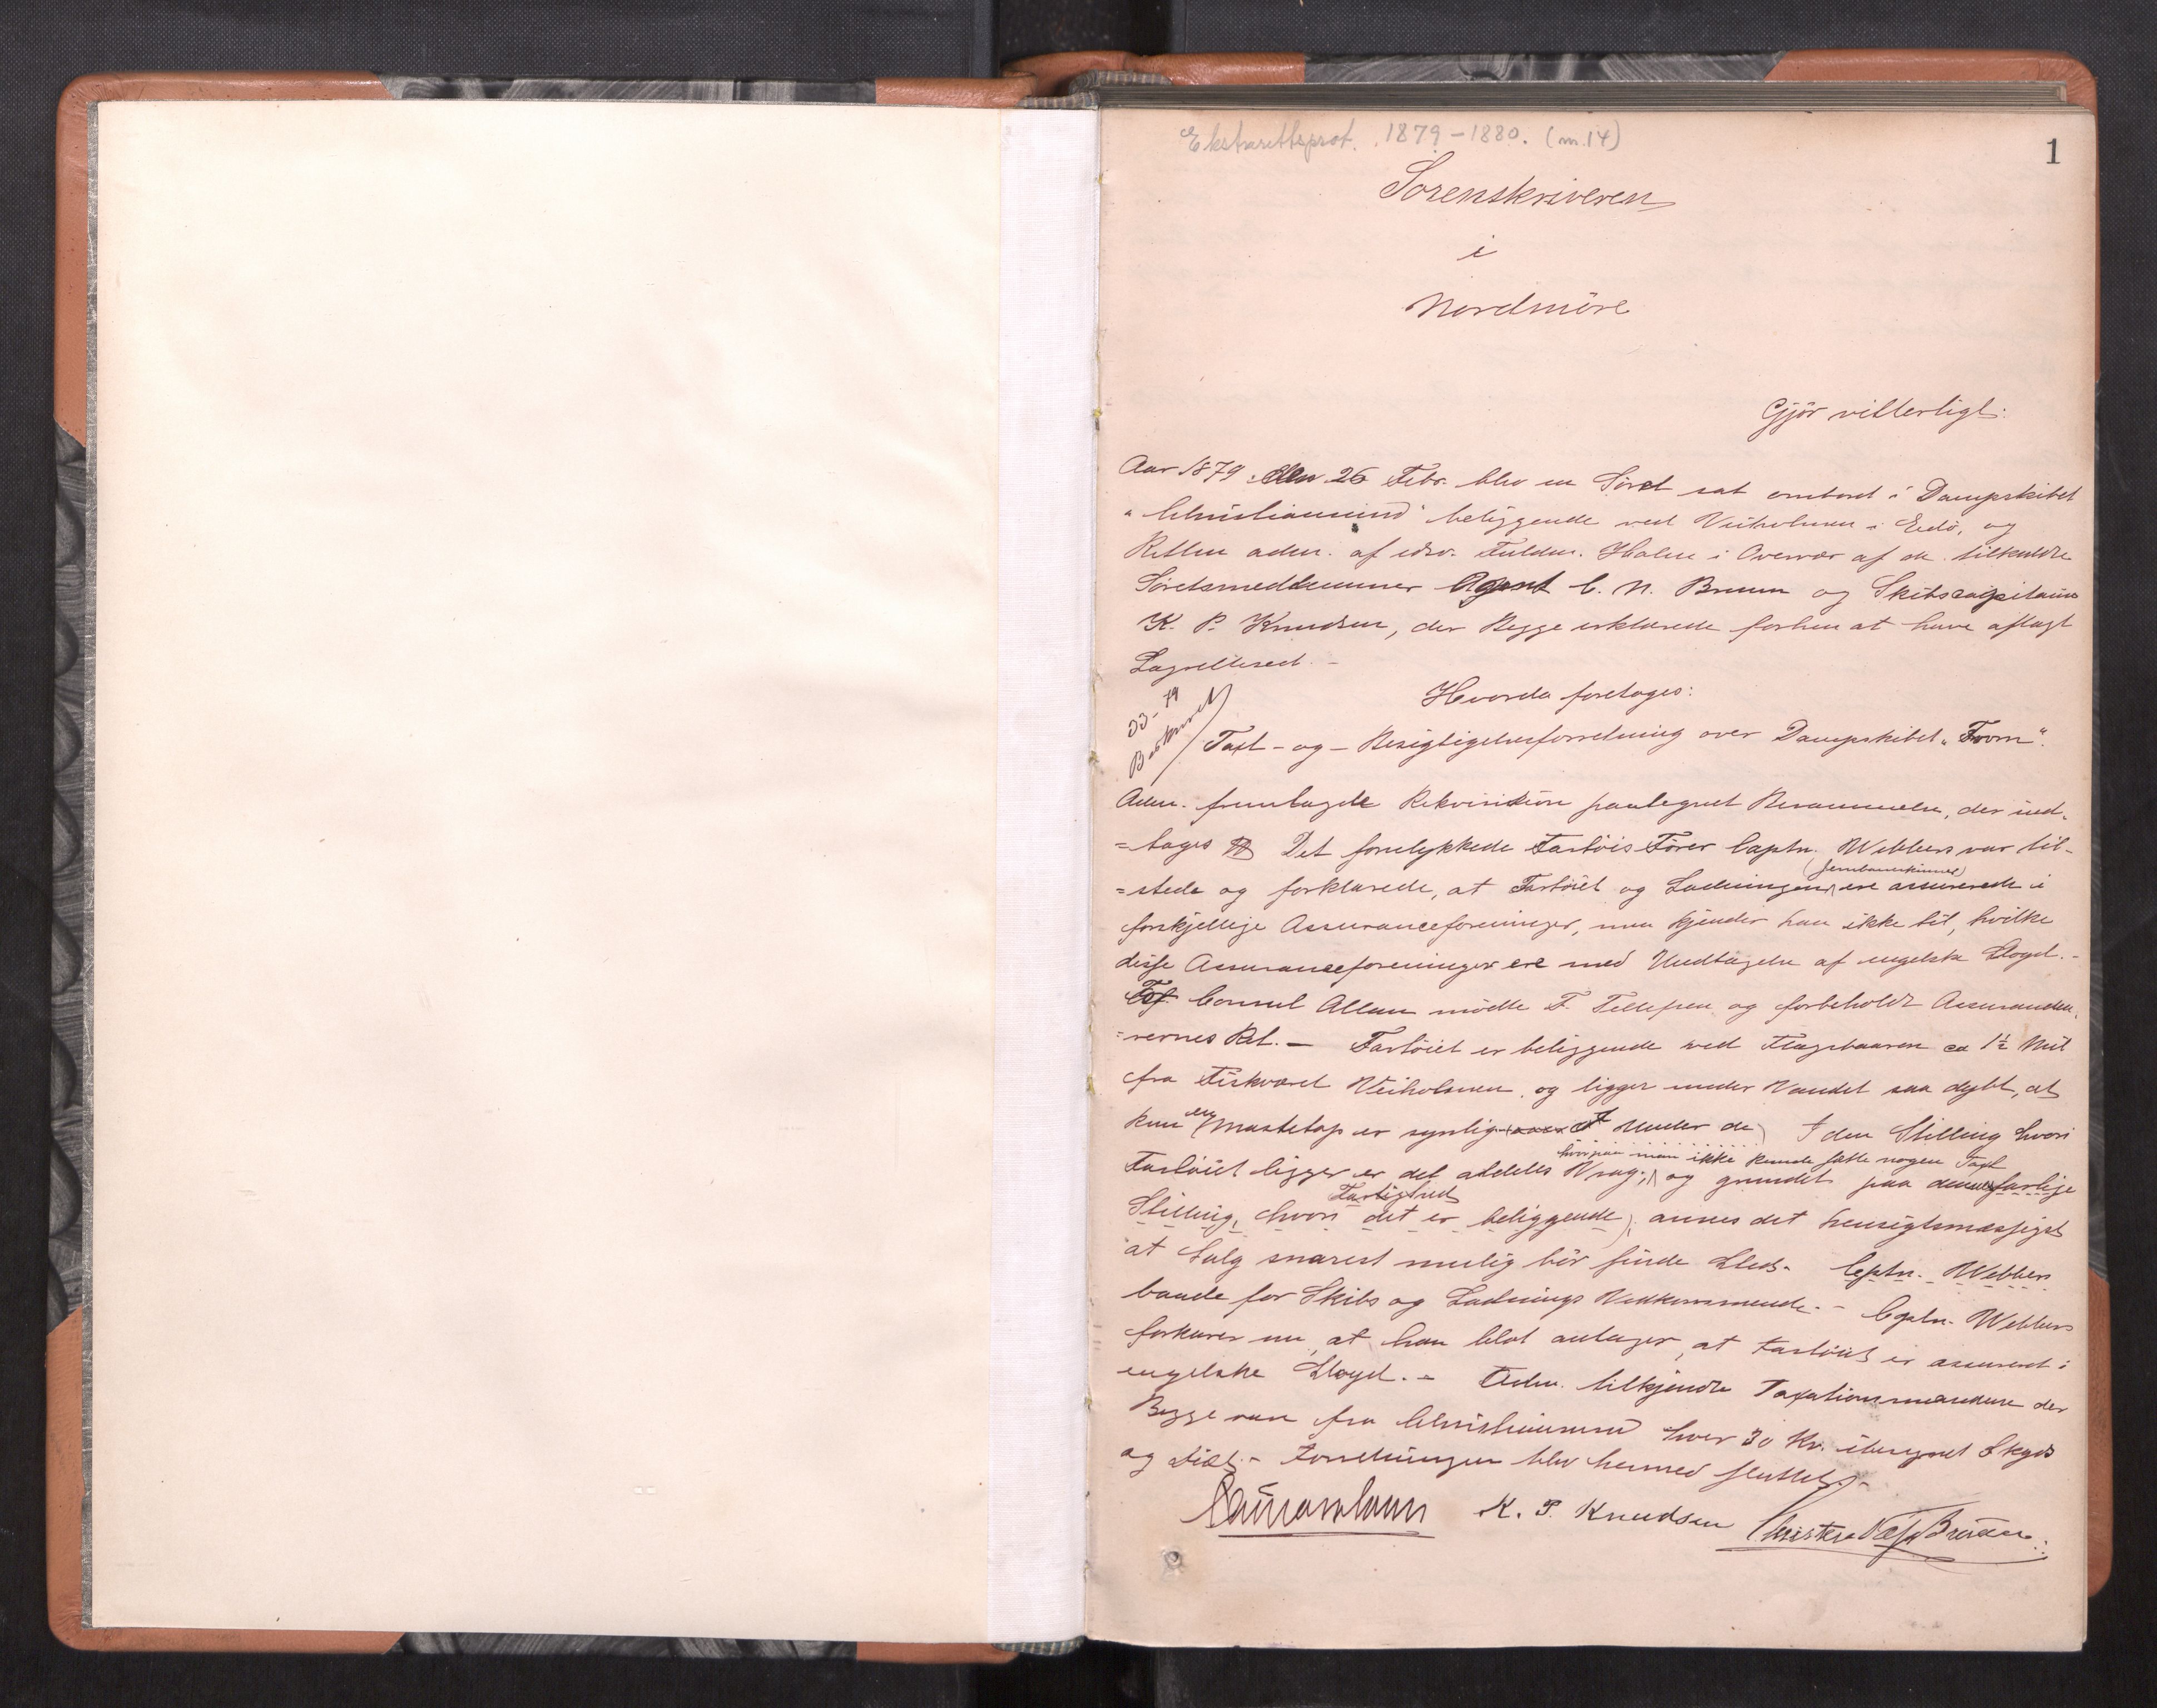 Ekstrarettsprot. 1879-1880. (m.14)
1
Sorenskriveren
i
Nordmöre
Gjör vitterligt:
Aar 1879 den 26 Febr. blev en Söret sat ombord i Dampskibet
"Christiansund" beliggende ved Veiholmen i Edö, og
Retten adm. af edsv. Fuldm. Holm i Overvær af de tilkaldte
Söretsmedlemmer Agent C. N. Bruun og Skibscapitain
K. P. Knudsen, der Begge erklærede forhen at have aflagt
Lagrettesed. -
Hvorda foretoges:
33-79
Beskrevet
Taxt- og - Besigtigelsesforretning over Dampskibet "Form".
Adm. fremlagde Rekvisition paategnet Berammelse, der ind-
=tages Det forulykkede Fartöis Förer Captn. Webbers var til-
(Jernbaneskinner)
=stede og forklarede, at Fartöiet og Ladningen ere assurerede i
forskjellige Assuranceforeninger, men kjender han ikke til, hvilke
disse Assuranceforeninger ere med Undtagelse af engelske Lloyd. -
For Consul Allan mödte F. Tellefsen og forbeholdt Assurandeu-
=rernes Ret. - Fartöiet er beliggende ved ca 1½ Mil
fra Fiskværet Veiholmen og ligger under Vandet saa dybt, at
kun en Mastetop er synlig under de) I den Stilling hvori
hvorpaa man ikke kunde sætte nogen Taxt
Fartöiet ligger er det aldeles Vrag; og grundet paa den farlige
Farlighed
Stilling, hvori det er beliggende), annes det hensigtsmæssigst
at Salg snarest mulig bör finde Sted. Captn. Webbers
baade for Skibs og Ladnings Vedkommende. - Captn. Webbers
forklarer nu, at han blot antager, at Fartöiet er assureret i
engelske Lloyd. - Adm. tilkjendte Taxationsmændene der
Begge vare fra Christiansund hver 30 Kr. iberegnet Skyds
og Diæt. - Forretningen blev hermed sluttet. -
K. P. Knudsen Christen Bruun